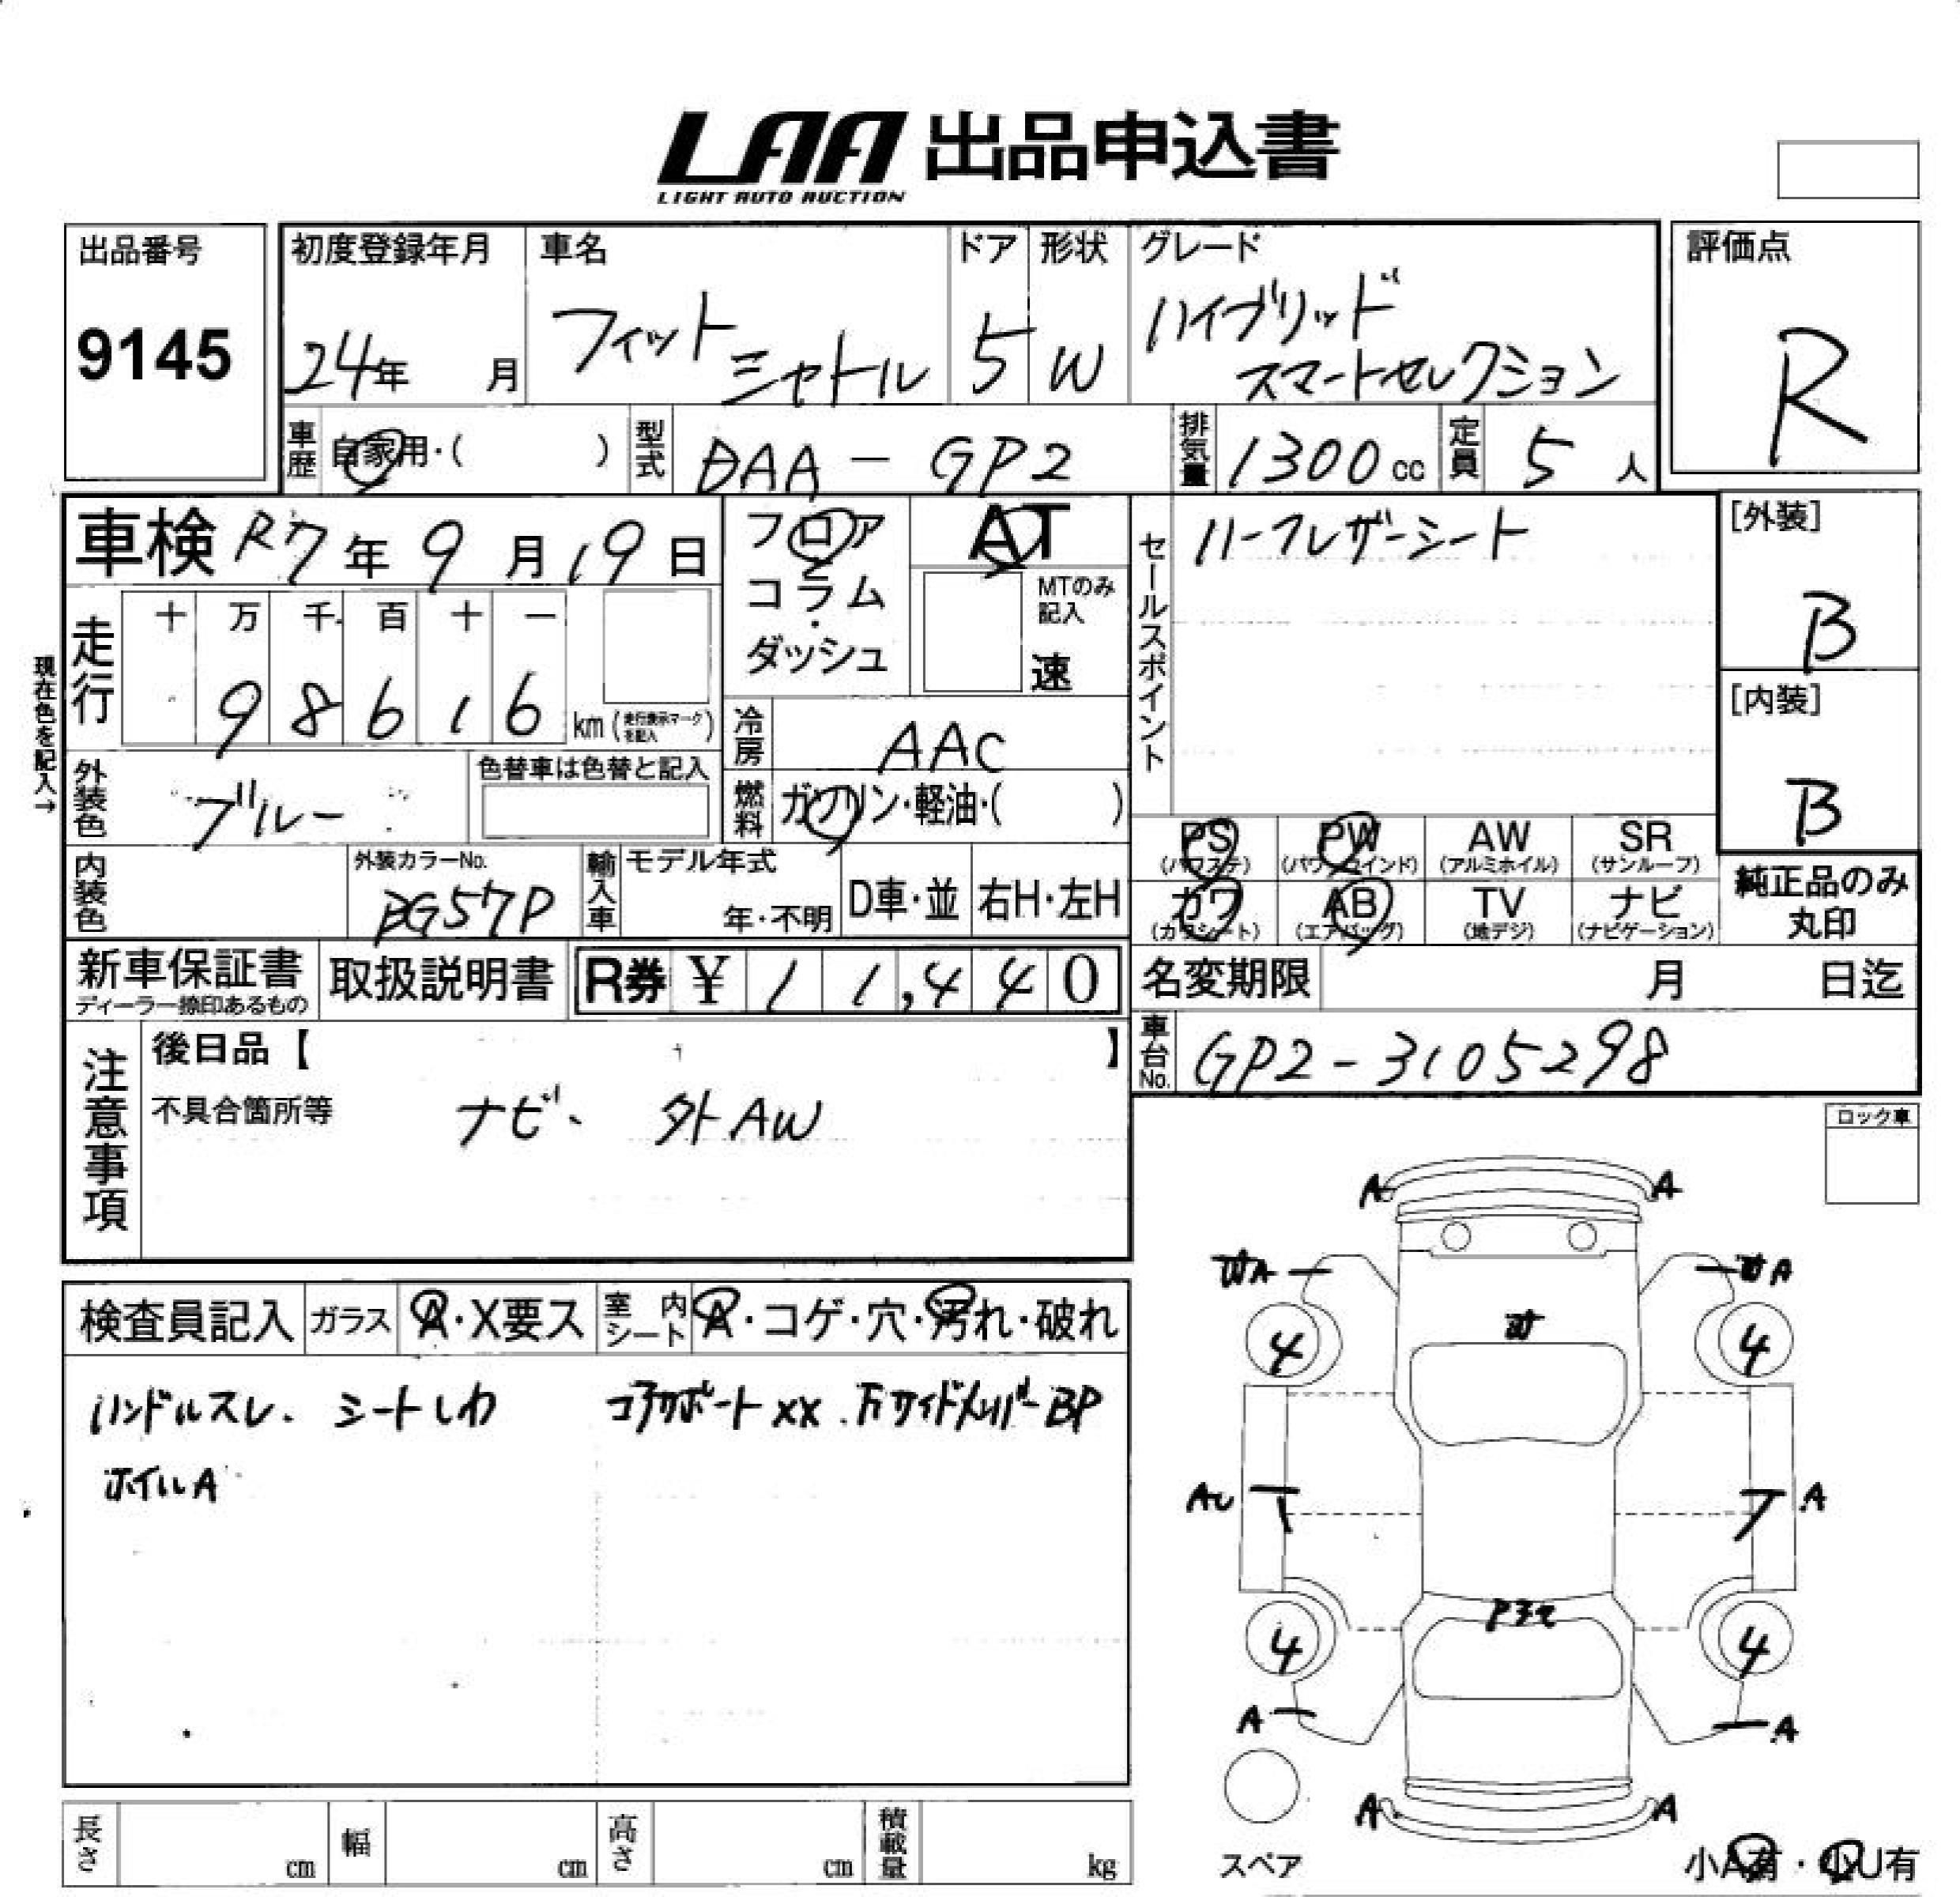 LAA 出品申込書
LIGHT AUTO AUCTION
出品番号
9145
初度登録年月
24年 月
車名
フィット
シャトル
ドア
5
形状
W
グレード
ハイブリッド
スマートセレクション
評価点
R
車歴 自家用・( )
型式 DAA - GP2
排気量 1300 cc
定員 5 人
車検 R7年 9月 19日
フロア
コラム
・
ダッシュ
AT
MTのみ
記入
速
セールスポイント
ハーフレザーシート
[外装]
B
[内装]
B
現在色を記入→
走行
十 万 千 百 十 一
9 8 6 1 6 km (走行表示マークを記入)
冷房 AAC
外装色 ブルー
色替車は色替と記入
燃料 ガソリン・軽油・( )
内装色
外装カラーNo.
BG57P
輸入車
モデル年式
年・不明
D車・並
右H・左H
PS (パワステ)
PW (パワーウインド)
AW (アルミホイル)
SR (サンルーフ)
カワ (カワシート)
AB (エアバッグ)
TV (地デジ)
ナビ (ナビゲーション)
純正品のみ
丸印
新車保証書
ディーラー捺印あるもの
取扱説明書
R券 ¥ 11,440
名変期限 月 日迄
車台No. GP2-3105298
注意事項
後日品【 】
不具合箇所等
ナビ、 外AW
ロック車
検査員記入
ガラス A・X要ス
室内シート A・コゲ・穴・汚れ・破れ
ハンドルスレ、 シートしわ
コアサポートXX、右サイドメンバーBP
ホイルA
A A
A A
4 4
AU A
4 4
A A
A A
スペア
小A有・小U有
長さ cm
幅 cm
高さ cm
積載量 kg